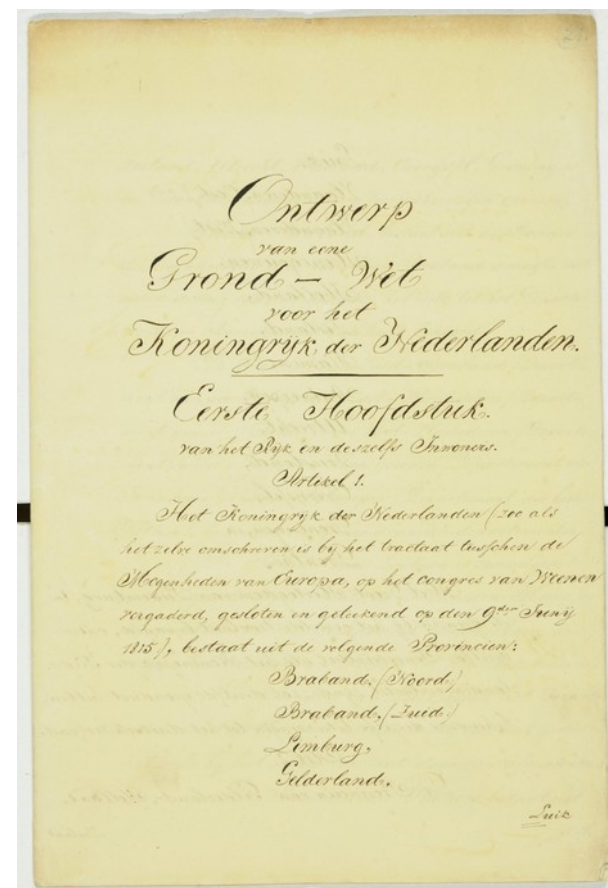 Ontwerp
van eene
Grond – Wet
voor het
Koningrijk der Nederlanden.
Eerste Hoofdstuk.
van het Rijk en deszelfs Inwoners.
Artikel 1.
Het Koningrijk der Nederlanden (zoo als
hetzelve omschreven is bij het tractaat tusschen de
Mogenheden van Europa, op het congres van Weenen
vergaderd, gesloten en geteekend op den 9den Junij
1815), bestaat uit de volgende Provincien:
Braband. (Noord)
Braband. (Zuid)
Limburg.
Gelderland.
Luik